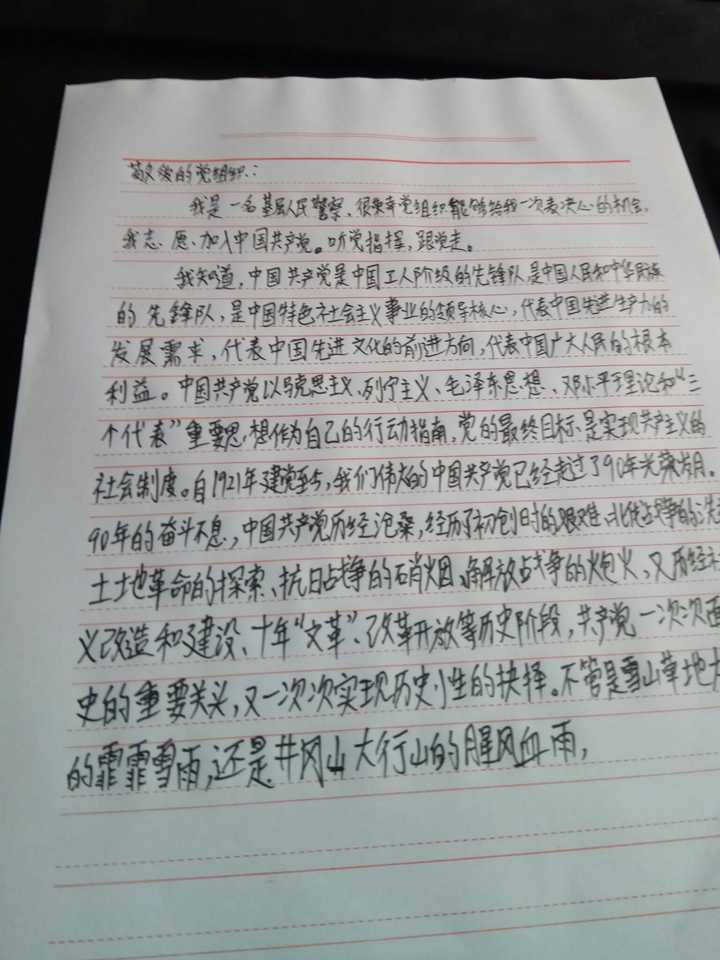 敬爱的党组织:
我是一名基层人民警察,很荣幸党组织能够给我一次表决心的机会。
我志愿加入中国共产党。听党指挥,跟党走。
我知道,中国共产党是中国工人阶级的先锋队是中国人民和中华民族
的先锋队,是中国特色社会主义事业的领导核心,代表中国先进生产力的
发展需求,代表中国先进文化的前进方向,代表中国广大人民的根本
利益。中国共产党以马克思主义、列宁主义、毛泽东思想、邓小平理论和“三
个代表”重要思想作为自己的行动指南,党的最终目标是实现共产主义的
社会制度。自1921年建党至今,我们伟大的中国共产党已经走过了90年光荣岁月。
90年的奋斗不息,中国共产党历经沧桑,经历了初创时的艰难、北伐战争的洗
土地革命的探索、抗日战争的硝烟、解放战争的炮火,又历经社
义改造和建设、十年“文革”、改革开放等历史阶段,共产党一次次面
史的重要关头,又一次次实现历史性的抉择。不管是雪山草地大
的霏霏雪雨,还是井冈山大行山的腥风血雨,